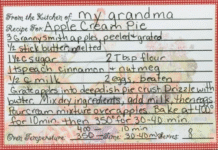 From the Kitchen of my grandma
Recipe For Apple Cream Pie
3 Granny Smith apples, peeled + grated
1/2 stick butter, melted
1 1/2 c sugar 2 Tbsp flour
1 tspeach cinnamon + nutmeg
1/2 c milk 2 eggs beaten
Grate apples into deepdish pie crust. Drizzle with
butter. Mix dry ingredients, add milk, then eggs.
Pour cream mixture over apples. Bake at 400
for 10 min, then 350° for 30-40 min.
400 10 min
Oven Temperature 350 Time 30-40min Serves 8